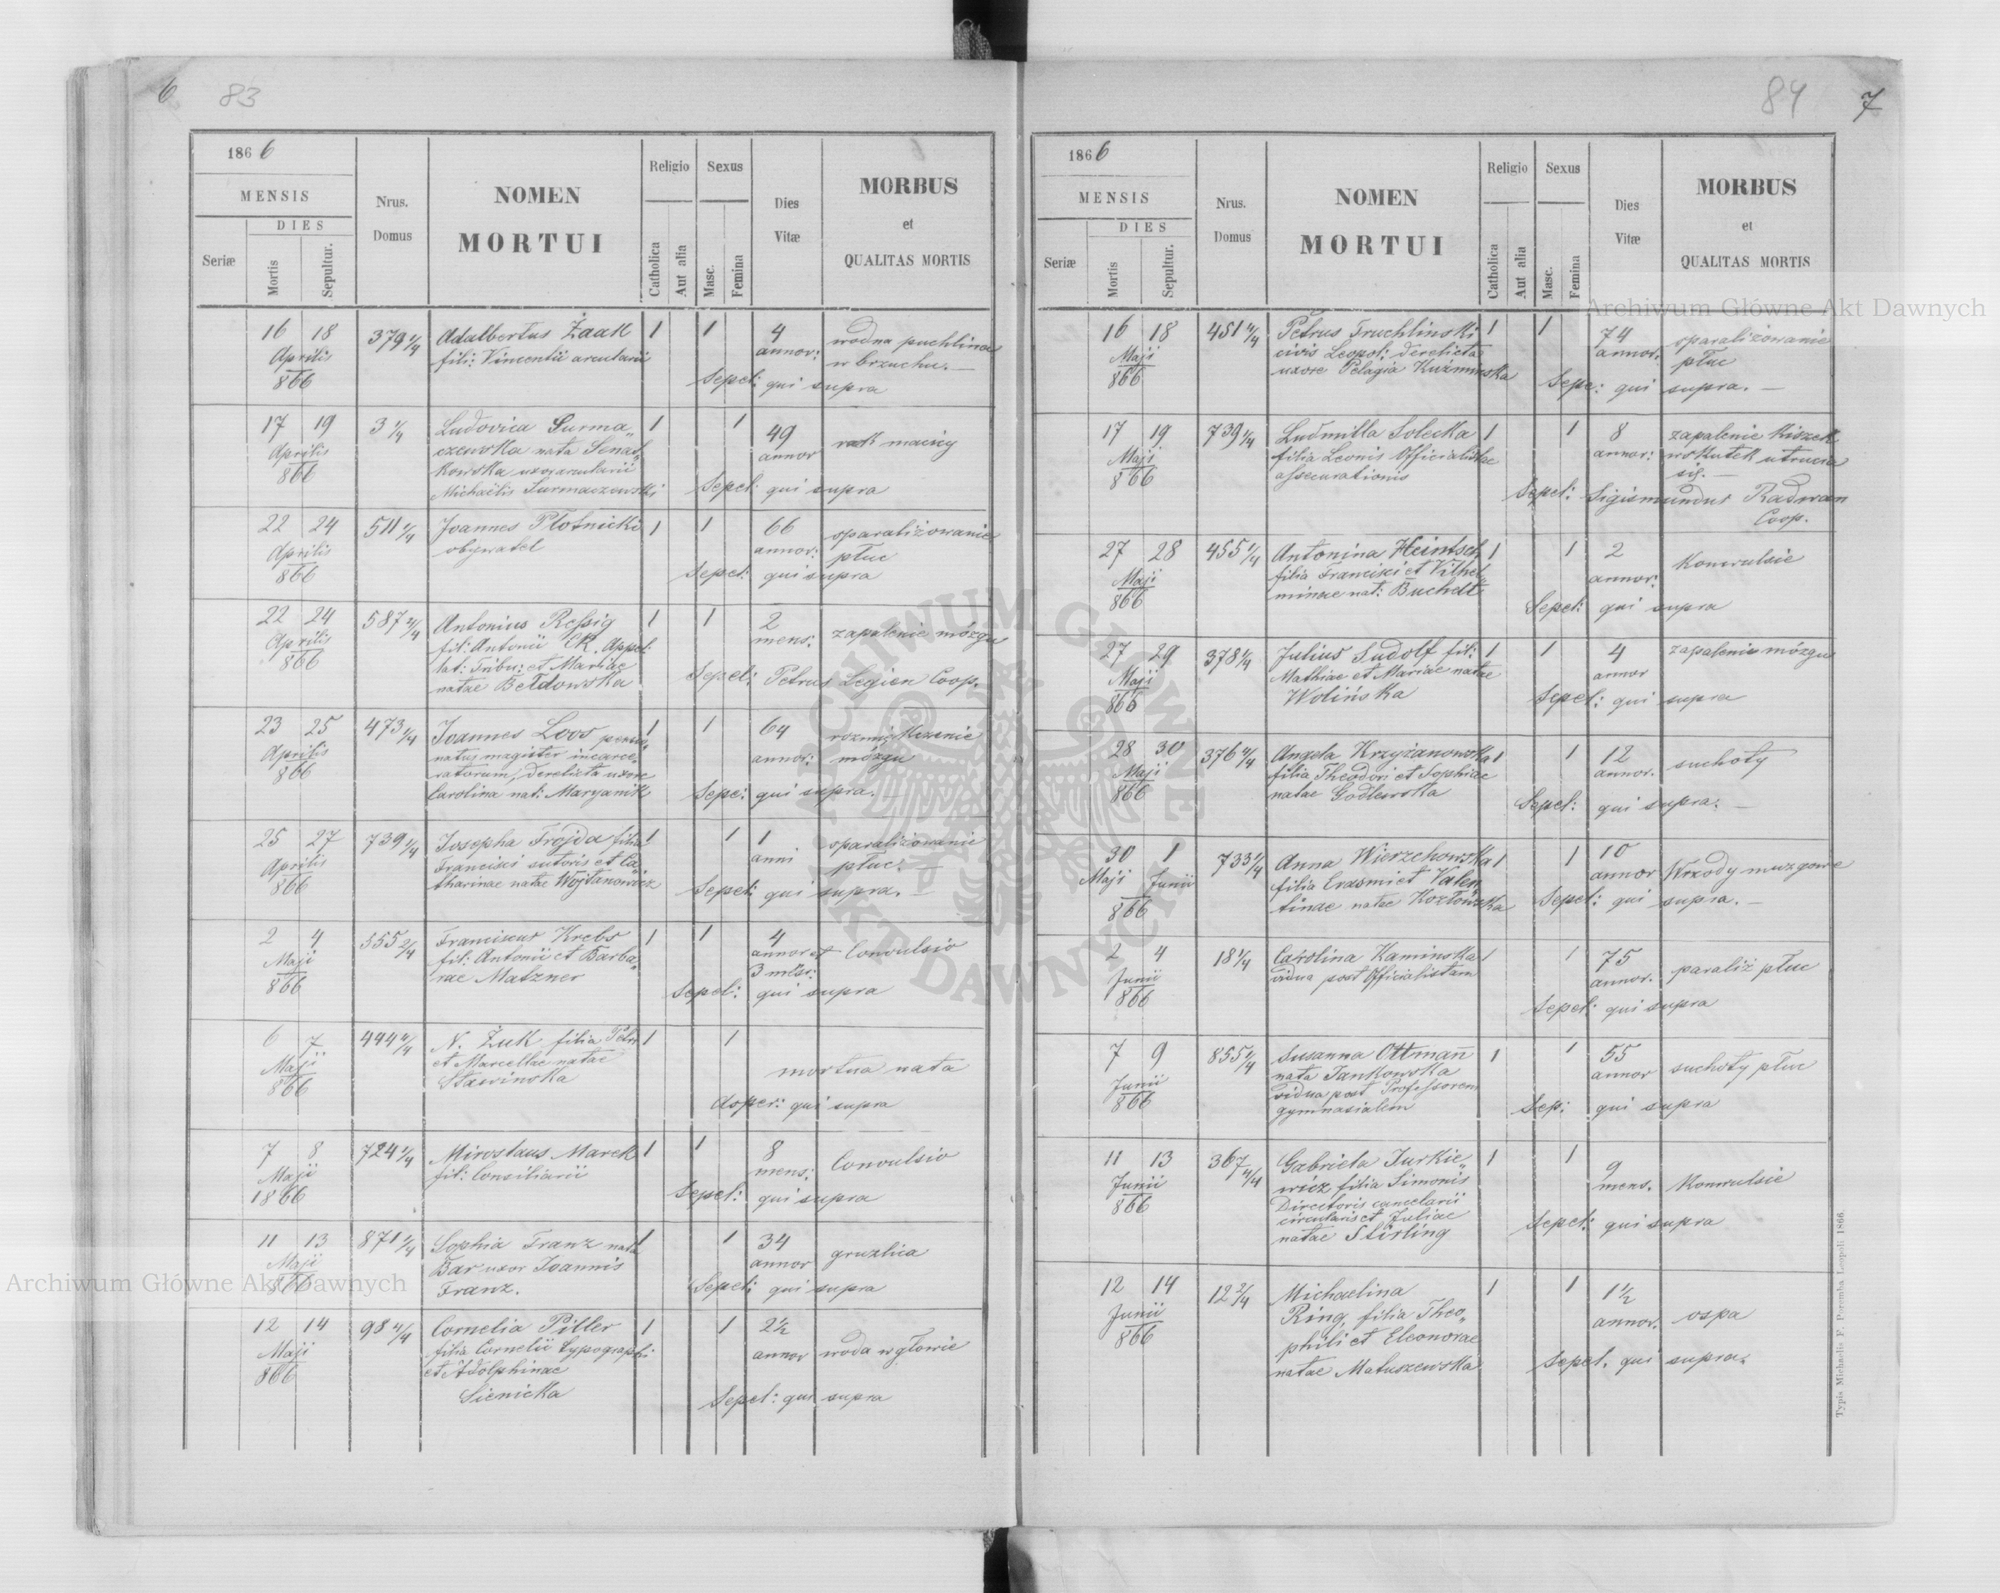 6 83
1866
MENSIS
DIES
Seriæ
Mortis
Sepultur.
Nrus.
Domus
NOMEN
MORTUI
Religio
Catholica
Aut alia
Sexus
Masc.
Femina
Dies
Vitæ
MORBUS
et
QUALITAS MORTIS
16 18 379 4/4 Adalbertus Żaak 1 1 4 wodna puchlina
Aprilis fili: Vincentii arcularii annor: w brzuchu. —
866 Sepel: qui supra
17 19 3 4/4 Ludovica Surma„ 1 1 49 rak macicy
Aprilis czewska nata Senat„ annor
866 kowska uxor arcularii
Michaëlis Surmaczewski Sepel: qui supra
22 24 511 4/4 Joannes Płotnicki 1 1 66 sparaliżowanie
Aprilis obywatel annor: płuc
866 Sepel: qui supra
22 24 587 4/4 Antonius Ressig 1 1 2 zapalenie mózgu
Aprilis fil: Antonii CR. Appel: mens:
866 lat: Tribu: et Mariae
natae Bełdowska Sepel: Petrus Legien Coop.
23 25 473 4/4 Joannes Loos pensio„ 1 1 64 rozmiękczenie
Aprilis natus magister incarce„ annor: mózgu
866 ratorum, derelicta uxore
Carolina nat: Maryanik Sepe: qui supra. —
25 27 739 4/4 Josepha Trojda filia 1 1 1 sparaliżowanie
Aprilis Francisci sutoris et Ca„ anni płuc. —
866 tharinae natae Wojtanowicz Sepel: qui supra. —
2 4 555 2/4 Franciscus Krebs 1 1 4 Convulsio
Maji fil: Antonii et Barba„ annor et
866 rae Matzner 3 mens:
Sepel: qui supra
6 7 444 4/4 N. Żuk filia Petri 1 1
Maji et Marcellae natae mortua nata
866 Stawinska
Asper: qui supra
7 8 724 4/4 Mirosłaus Marek 1 1 8 Convulsio
Maji fil: Consiliarii mens:
1866 Sepel: qui supra
11 13 871 4/4 Sophia Franz nata 1 1 34 gruzlica
Maji Bar uxor Joannis annor
866 Franz. Sepel: qui supra
12 14 98 4/4 Cornelia Piller 1 1 2½
Maji filia Cornelii typographi annor woda w głowie
866 et Adolphinae
Sienicka Sepel: qui supra
84 7
1866
MENSIS
DIES
Seriæ
Mortis
Sepultur.
Nrus.
Domus
NOMEN
MORTUI
Religio
Catholica
Aut alia
Sexus
Masc.
Femina
Dies
Vitæ
MORBUS
et
QUALITAS MORTIS
16 18 451 4/4 Petrus Truchlinski 1 1 74 sparaliżowanie
Maji civis Leopol: derelicta annor. płuc
866 uxore Pelagia Kuźminska Sepe: qui supra. —
17 19 739 4/4 Ludmilla Solecka 1 1 8 zapalenie kiszek
Maji filia Leonis Officialistae annor: wskutek utrucia
866 assecurationis się. —
Sepel: Sigismundus Radwan
Coop.
27 28 455 4/4 Antonina Heintsch 1 1 2 Konwulsie
Maji filia Francisci et Vilhel„ annor:
866 minae nat: Buchelt Sepel: qui supra
27 29 378 4/4 Julius Ludolf fil: 1 1 4 zapalenie mózgu
Maji Mathiae et Mariae natae annor
866 Wolińska Sepel: qui supra
28 30 376 4/4 Angela Krzyżanowska 1 1 12 suchoty
Maji filia Theodori et Sophiae annor.
866 natae Godlewska Sepel: qui supra. —
30 1 733 4/4 Anna Wierzchowska 1 1 10 Wrzody muzgowe
Maji Junii filia Erasmi et Valen„ annor
866 tinae natae Kozłowska Sepel: qui supra. —
2 4 18 4/4 Carolina Kaminska 1 1 75 paraliż płuc
Junii vidua post Officialistam annor.
866 Sepel: qui supra
7 9 855 4/4 Susanna Ottmann 1 1 55 suchoty płuc
Junii nata Jankowska annor
866 vidua post Professorem
gymnasialem Sep: qui supra
11 13 367 4/4 Gabriela Jurkie„ 1 1 9 Konwulsie
Junii wicz filia Simonis mens.
866 Directoris cancelarii
circularis et Juliae Sepel: qui supra
natae Stirling
12 14 12 2/4 Michaelina 1 1 1½ ospa
Junii Ring, filia Theo„ annor.
866 phili et Eleonorae
natae Matuszewska Sepel. qui supra.
Typis Michaelis F. Poremba Leopoli 1866.
Archiwum Główne Akt Dawnych
Archiwum Główne Akt Dawnych
ARCHIWUM GŁÓWNE AKT DAWNYCH